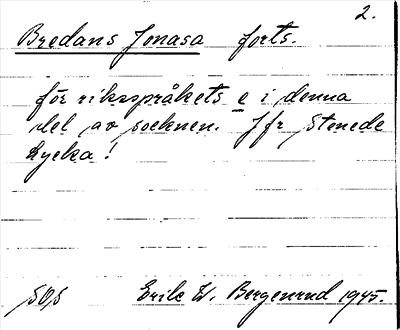 2.
Bredans Jonasa forts.
för riksspråkets e i denna
del av socknen. Jfr Stenede
lycka!
50,5 Erik W. Bergenrud 1945.